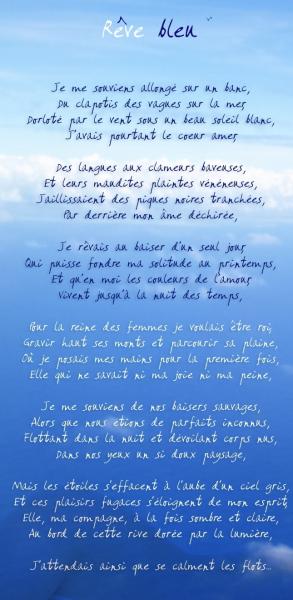 Rêve bleu
Je me souviens allongé sur un banc,
Du clapotis des vagues sur la mer,
Dorloté par le vent sous un beau soleil blanc,
J'avais pourtant le coeur amer,
Des langues aux clameurs baveuses,
Et leurs maudites plaintes vénéneuses,
Jaillissaient des piques noires tranchées,
Par derrière mon âme déchirée,
Je rêvais au baiser d'un seul jour,
Qui puisse fondre ma solitude au printemps,
Et qu'en moi les couleurs de l'amour,
Vivent jusqu'à la nuit des temps,
Pour la reine des femmes je voulais être roi,
Gravir haut ses monts et parcourir sa plaine,
Où je posais mes mains pour la première fois,
Elle qui ne savait ni ma joie ni ma peine,
Je me souviens de nos baisers sauvages,
Alors que nous étions de parfaits inconnus,
Flottant dans la nuit et dévoilant corps nus,
Dans nos yeux un si doux paysage,
Mais les étoiles s'effacent à l'aube d'un ciel gris,
Et ces plaisirs fugaces s'éloignent de mon esprit,
Elle, ma compagne, à la fois sombre et claire,
Au bord de cette rive dorée par la lumière,
J'attendais ainsi que se calment les flots...